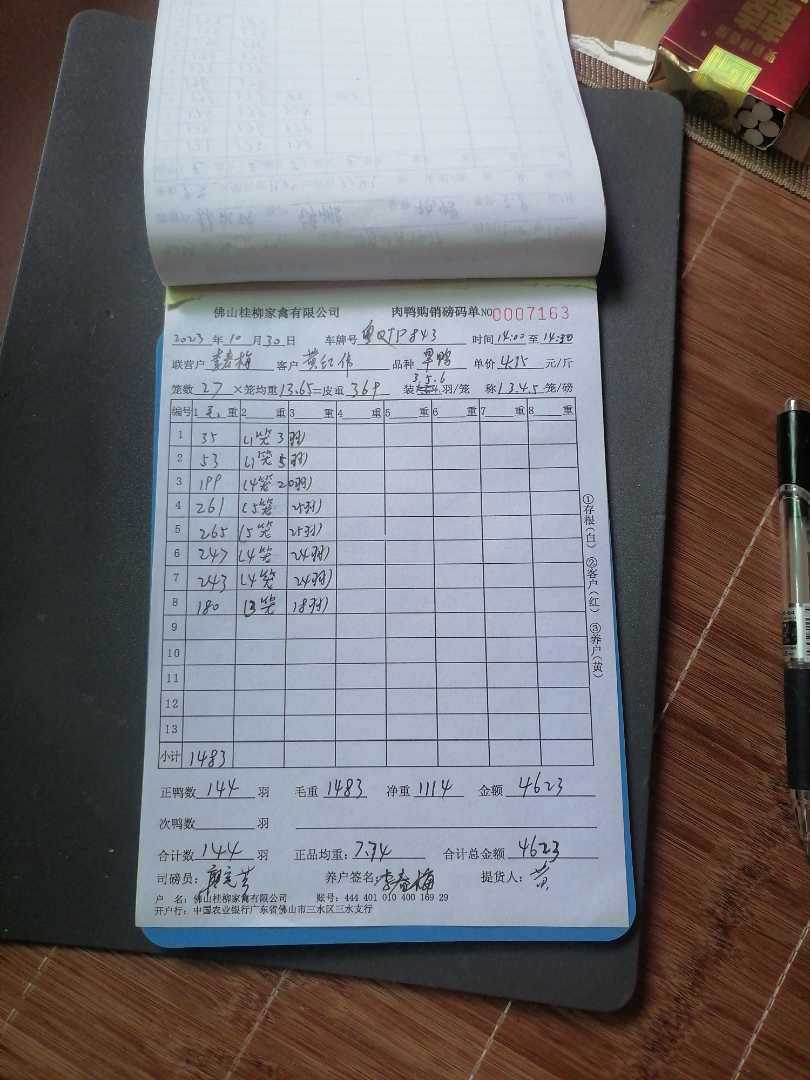 佛山桂柳家禽有限公司 肉鸭购销磅码单 NO 0007163
2023 年 10 月 30 日 车牌号 粤QJP843 时间 14:00 至 14:30
联营户 李春梅 客户 黄红伟 品种 旱鸭 单价 4.15 元/斤
笼数 27 ×笼均重 13.65 =皮重 369 装 3.5.6 羽/笼 称 1.3.4.5 笼/磅
编号 1 毛 重 2 重 3 重 4 重 5 重 6 重 7 重 8 重
1 35 (1笼 3羽)
2 53 (1笼 5羽)
3 199 (4笼 20羽)
4 261 (5笼 25羽)
5 265 (5笼 25羽)
6 247 (4笼 24羽)
7 243 (4笼 24羽)
8 180 (3笼 18羽)
9
10
11
12
13
小计 1483
①存根(白) ②客户(红) ③养户(黄)
正鸭数 144 羽 毛重 1483 净重 1114 金额 4623
次鸭数 羽
合计数 144 羽 正品均重: 7.74 合计总金额 4623
司磅员: 养户签名: 李春梅 提货人: 黄
户 名: 佛山桂柳家禽有限公司 账号: 444 401 010 400 169 29
开户行: 中国农业银行广东省佛山市三水区三水支行